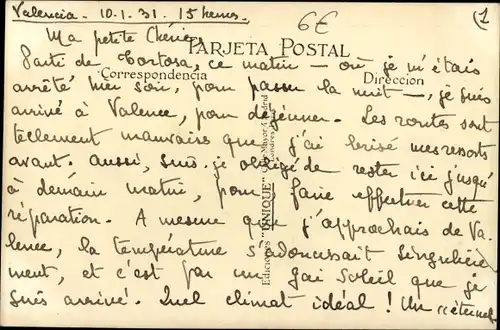 Valencia. 10.1.31. 15 heures.
6€
(1
Ma petite Chérie,
TARJETA POSTAL
Parti de Tortosa, ce matin — où je m'étais
Correspondencia
Direccion
arrêté hier soir, pour passer la nuit —, je suis
arrivé à Valence, pour déjeuner. Les routes sont
tellement mauvaises que j'ai brisé mes ressorts
avant. Aussi, suis-je obligé de rester ici jusqu'
à demain matin, pour faire effectuer cette
réparation. A mesure que j'approchais de Va-
lence, la température s'adoucissait singulière
ment, et c'est par un gai soleil que je
suis arrivé. Quel climat idéal ! Un "éternel
Ediciones "UNIQUE" Mayor 4 Madrid